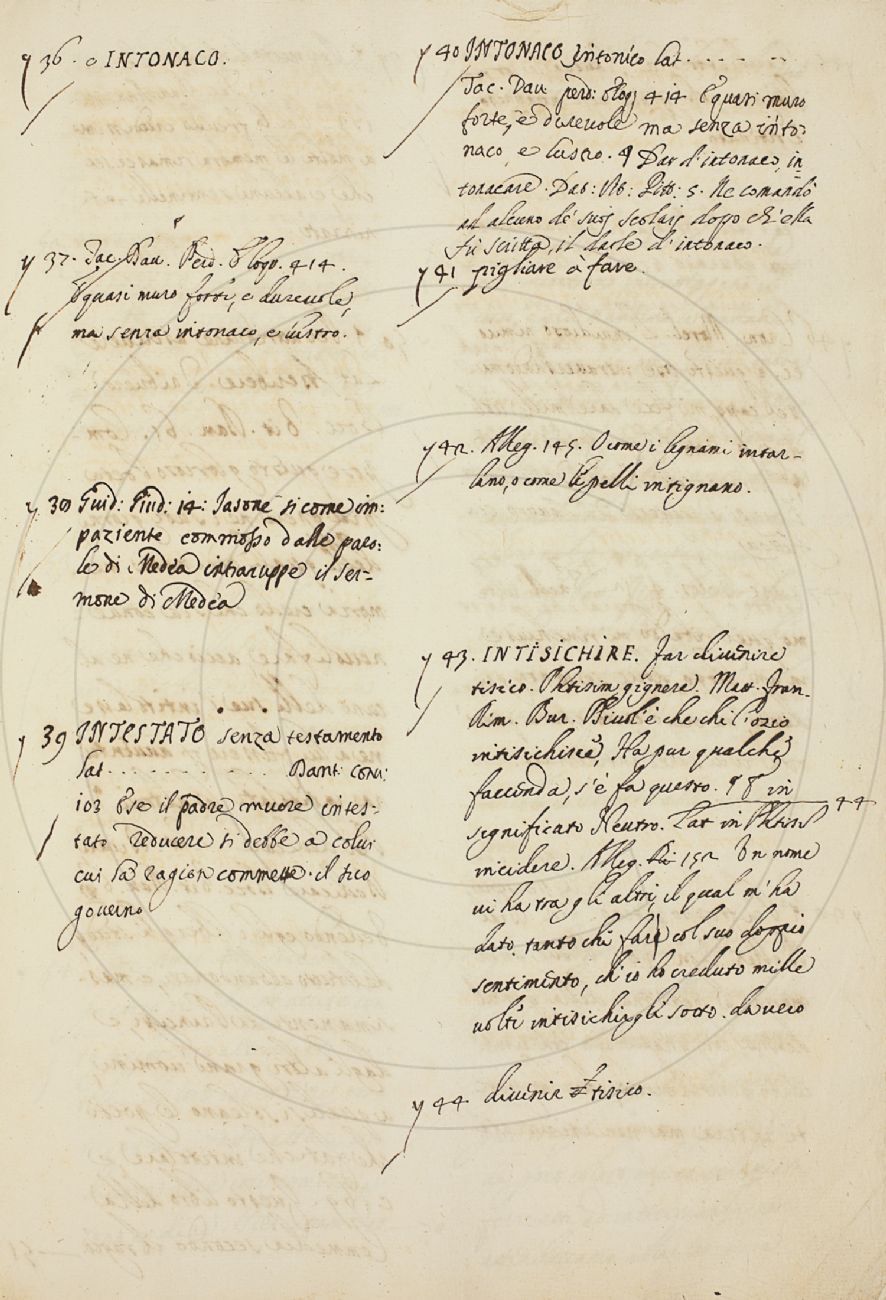 y 36. o INTONACO.
y 37. Jac. Dau. Perd. Elog. 414.
E quasi muro forte, e dureuole,
ma senza intonaco, e lustro.
y 38 Guid: Giud: 14: Jasone si come im:
paziente commosso dalle paro:
le di Medea intaruppe il ser-
mone di Medea
y 39 INTESTATO senza testamento
lat. . . . . . . . . . . . Dant: conu:
103 E se il padre muore intes:
tato reducere si debbe a colui
cui la ragion commette il suo
gouerno
y 40 INTONACO Intonico lat. . . . . .
Jac. Dau. perd: Elog: 414 E quasi muro
forte, e dureuole ma senza into:
naco, e lustro. ¶ Dar d'intonaco, in
tonacare. Dat: Vit: Pitt: 5. Ne comandò
ad alcuno de' suoj scolarj dopo ch'ella
fù scritta, il darle d'intonaco.
y 41 pigliare à fare.
y 42. Alleg. 145. O come i legnami intar-
lano, o come le pelli intignano.
y 43. INTISICHIRE. Far diuenire
tisico. Phtisim gignere. Matt. Fran.
Rim. Bur. Piuol'è che chi l'ozio
intisichisce, Ha pur qualche
faccenda, s'è fa questo. ¶ E in
significato Neutro. Lat in Phtisim 44
incidere. Alleg. 152 Un nome
ui ha tra gli altri, il qual m'ha
dato tanto che fare col suo doppio
sentimento, ch'io ho creduto mille
uolte intisichirgli sotto da uero
y 44 diuenir tisico.